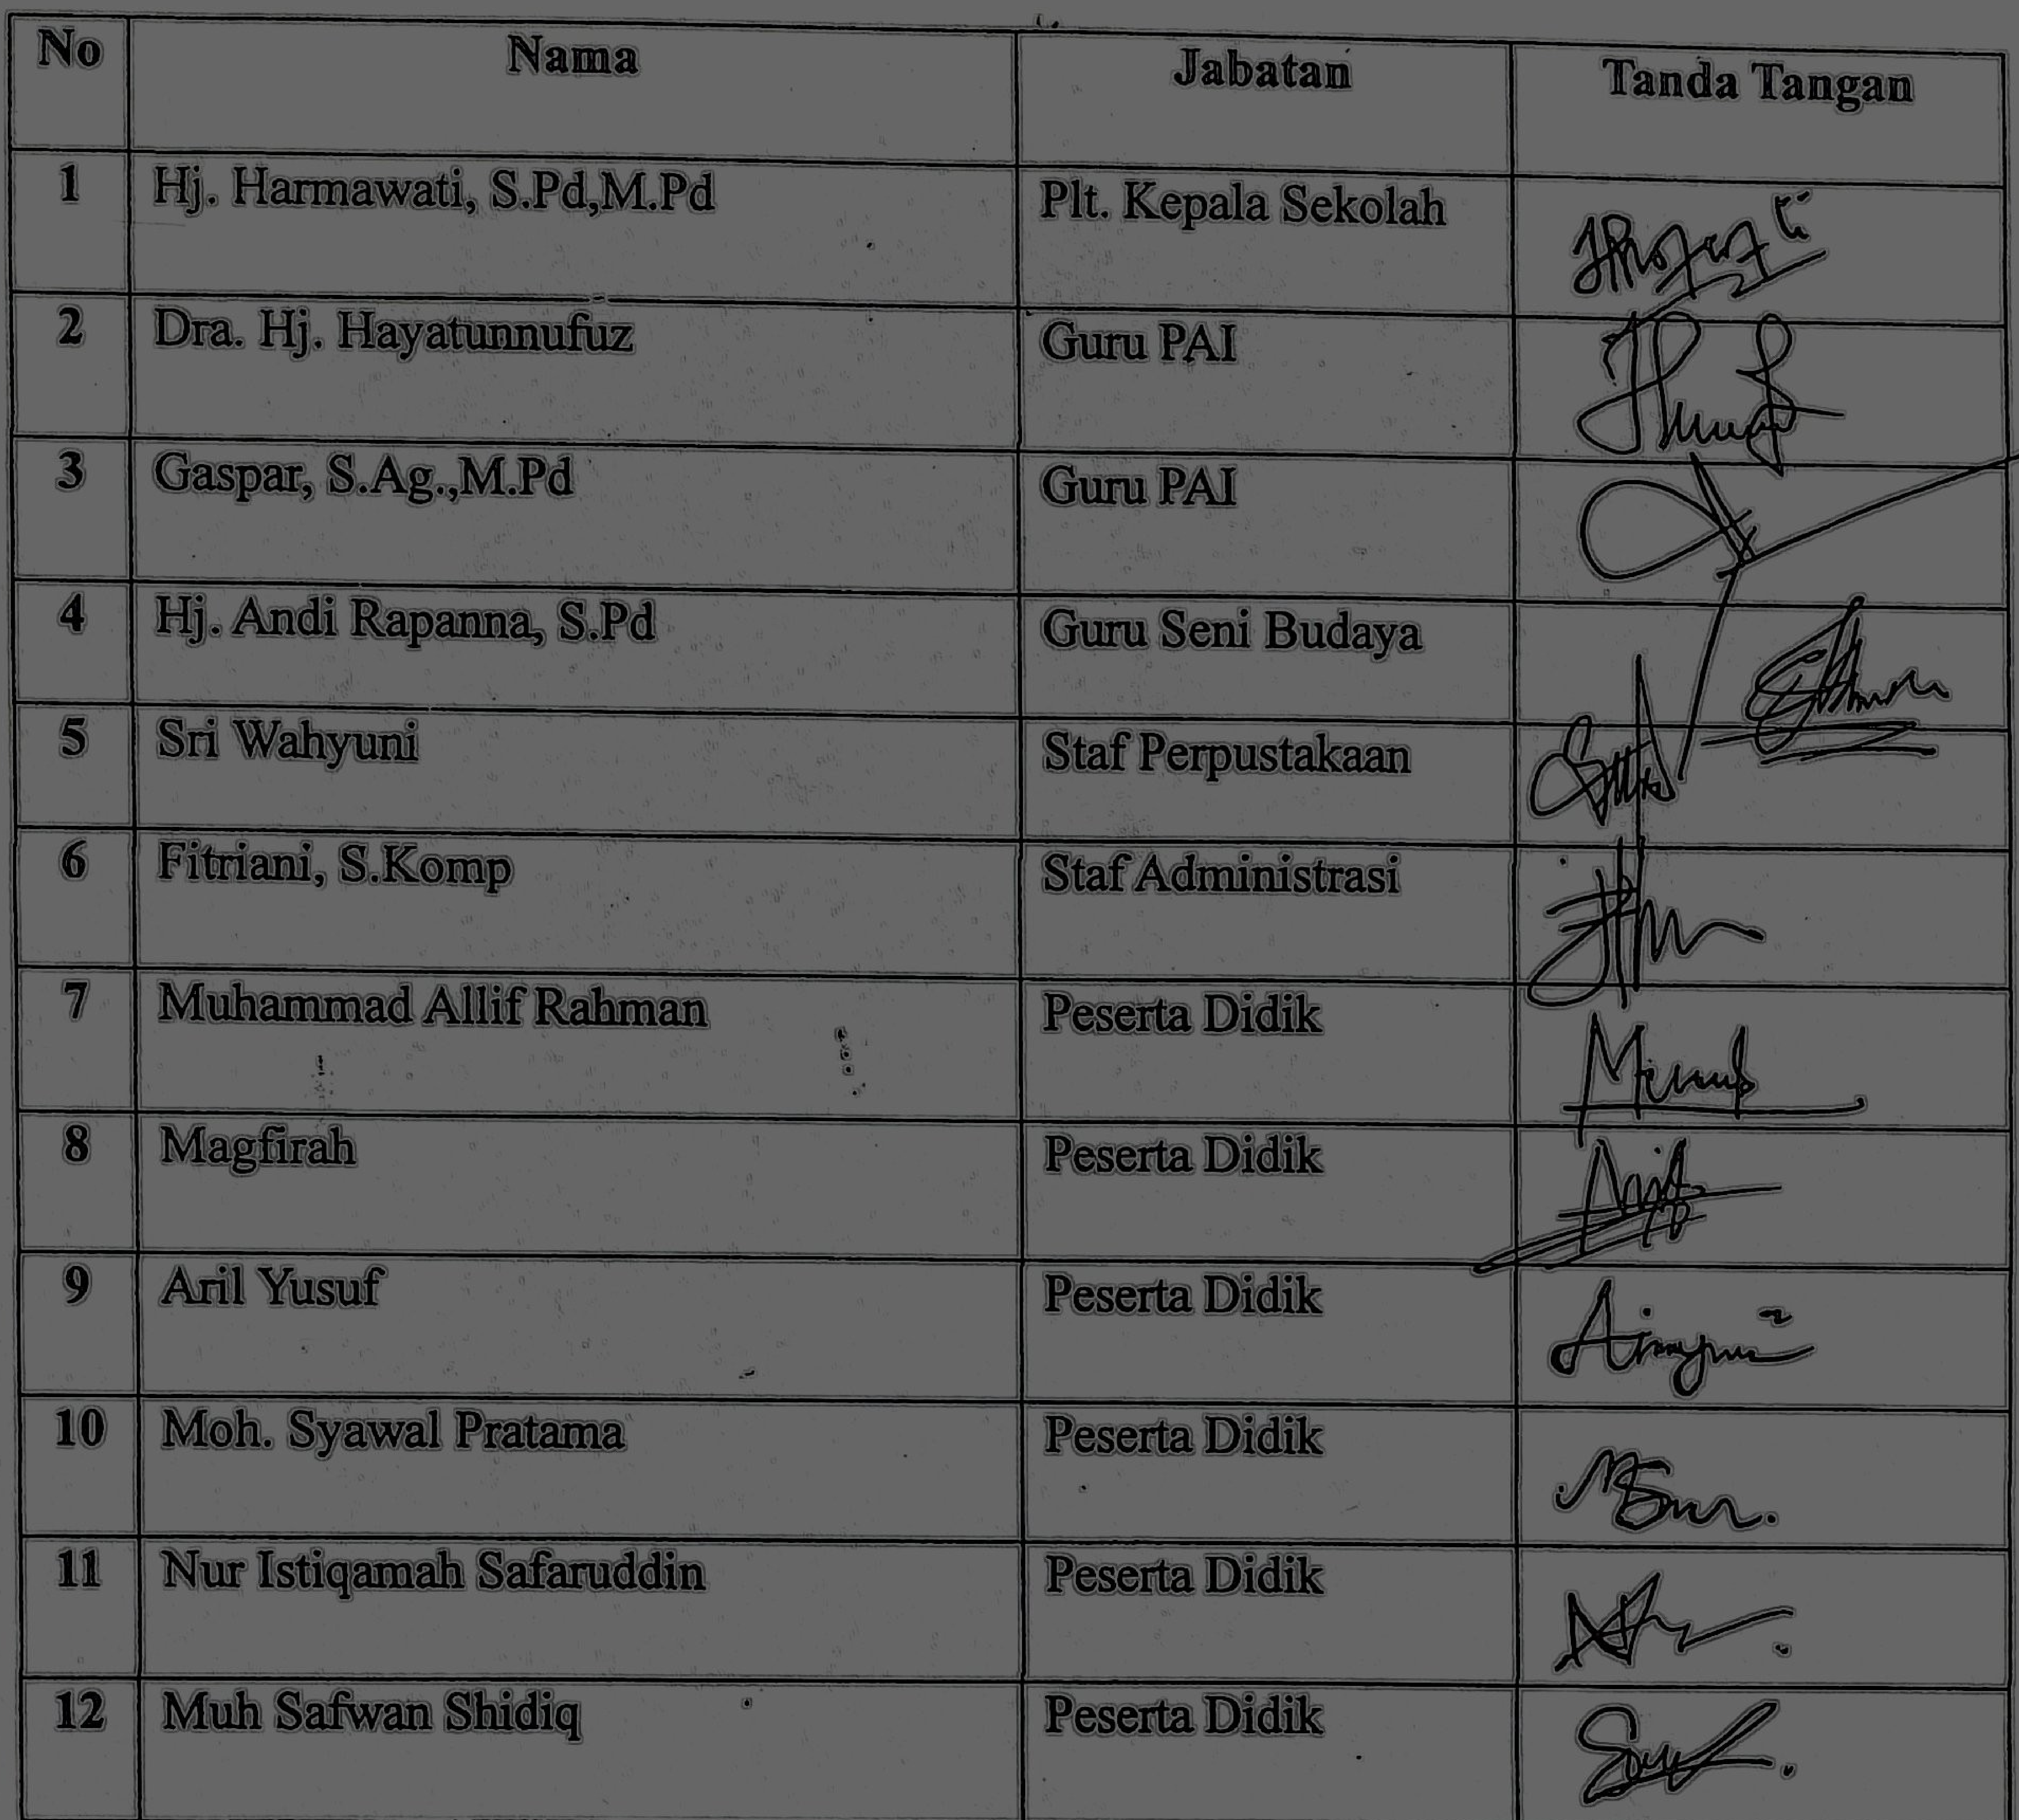 No Nama Jabatan Tanda Tangan
1 Hj. Harmawati, S.Pd,M.Pd Plt. Kepala Sekolah
2 Dra. Hj. Hayatunnufuz Guru PAI
3 Gaspar, S.Ag.,M.Pd Guru PAI
4 Hj. Andi Rapanna, S.Pd Guru Seni Budaya
5 Sri Wahyuni Staf Perpustakaan
6 Fitriani, S.Komp Staf Administrasi
7 Muhammad Allif Rahman Peserta Didik
8 Magfirah Peserta Didik
9 Aril Yusuf Peserta Didik
10 Moh. Syawal Pratama Peserta Didik
11 Nur Istiqamah Safaruddin Peserta Didik
12 Muh Safwan Shidiq Peserta Didik